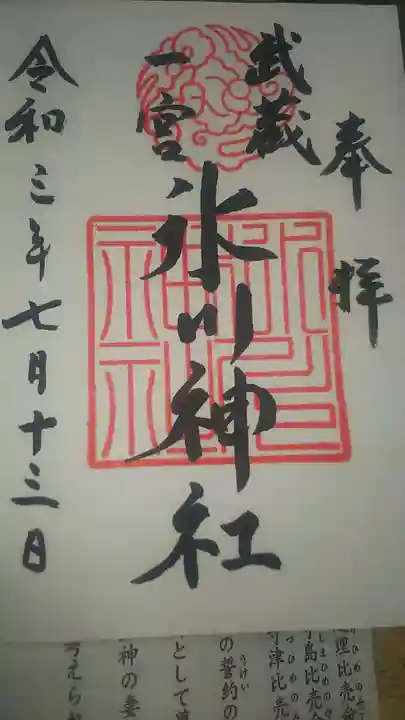 奉拝
武蔵
一宮
氷川神社
令和三年七月十三日
氷川神社
理比売命
島比売
津比売
うけい
の誓約の
として
神の妻
考えられ